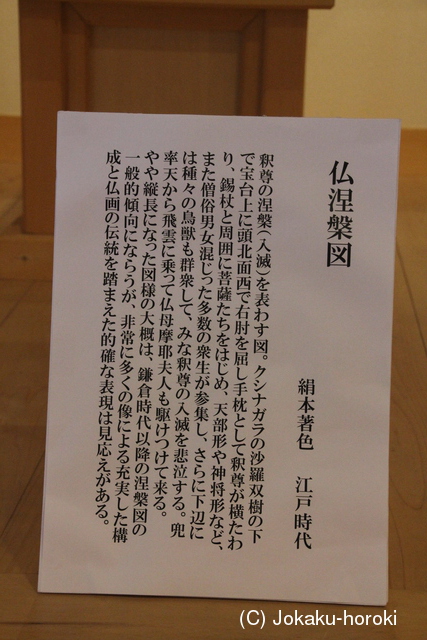 仏涅槃図
絹本著色　江戸時代
釈尊の涅槃（入滅）を表わす図。クシナガラの沙羅双樹の下
で宝台上に頭北面西で右肘を屈し手枕として釈尊が横たわ
り、錫杖と周囲に菩薩たちをはじめ、天部形や神将形など、
また僧俗男女混じった多数の衆生が参集し、さらに下辺に
は種々の鳥獣も群衆して、みな釈尊の入滅を悲泣する。兜
率天から飛雲に乗って仏母摩耶夫人も駆けつけて来る。
やや縦長になった図様の大概は、鎌倉時代以降の涅槃図の
一般的傾向にならうが、非常に多くの像による充実した構
成と仏画の伝統を踏まえた的確な表現は見応えがある。
(C) Jokaku-horoki